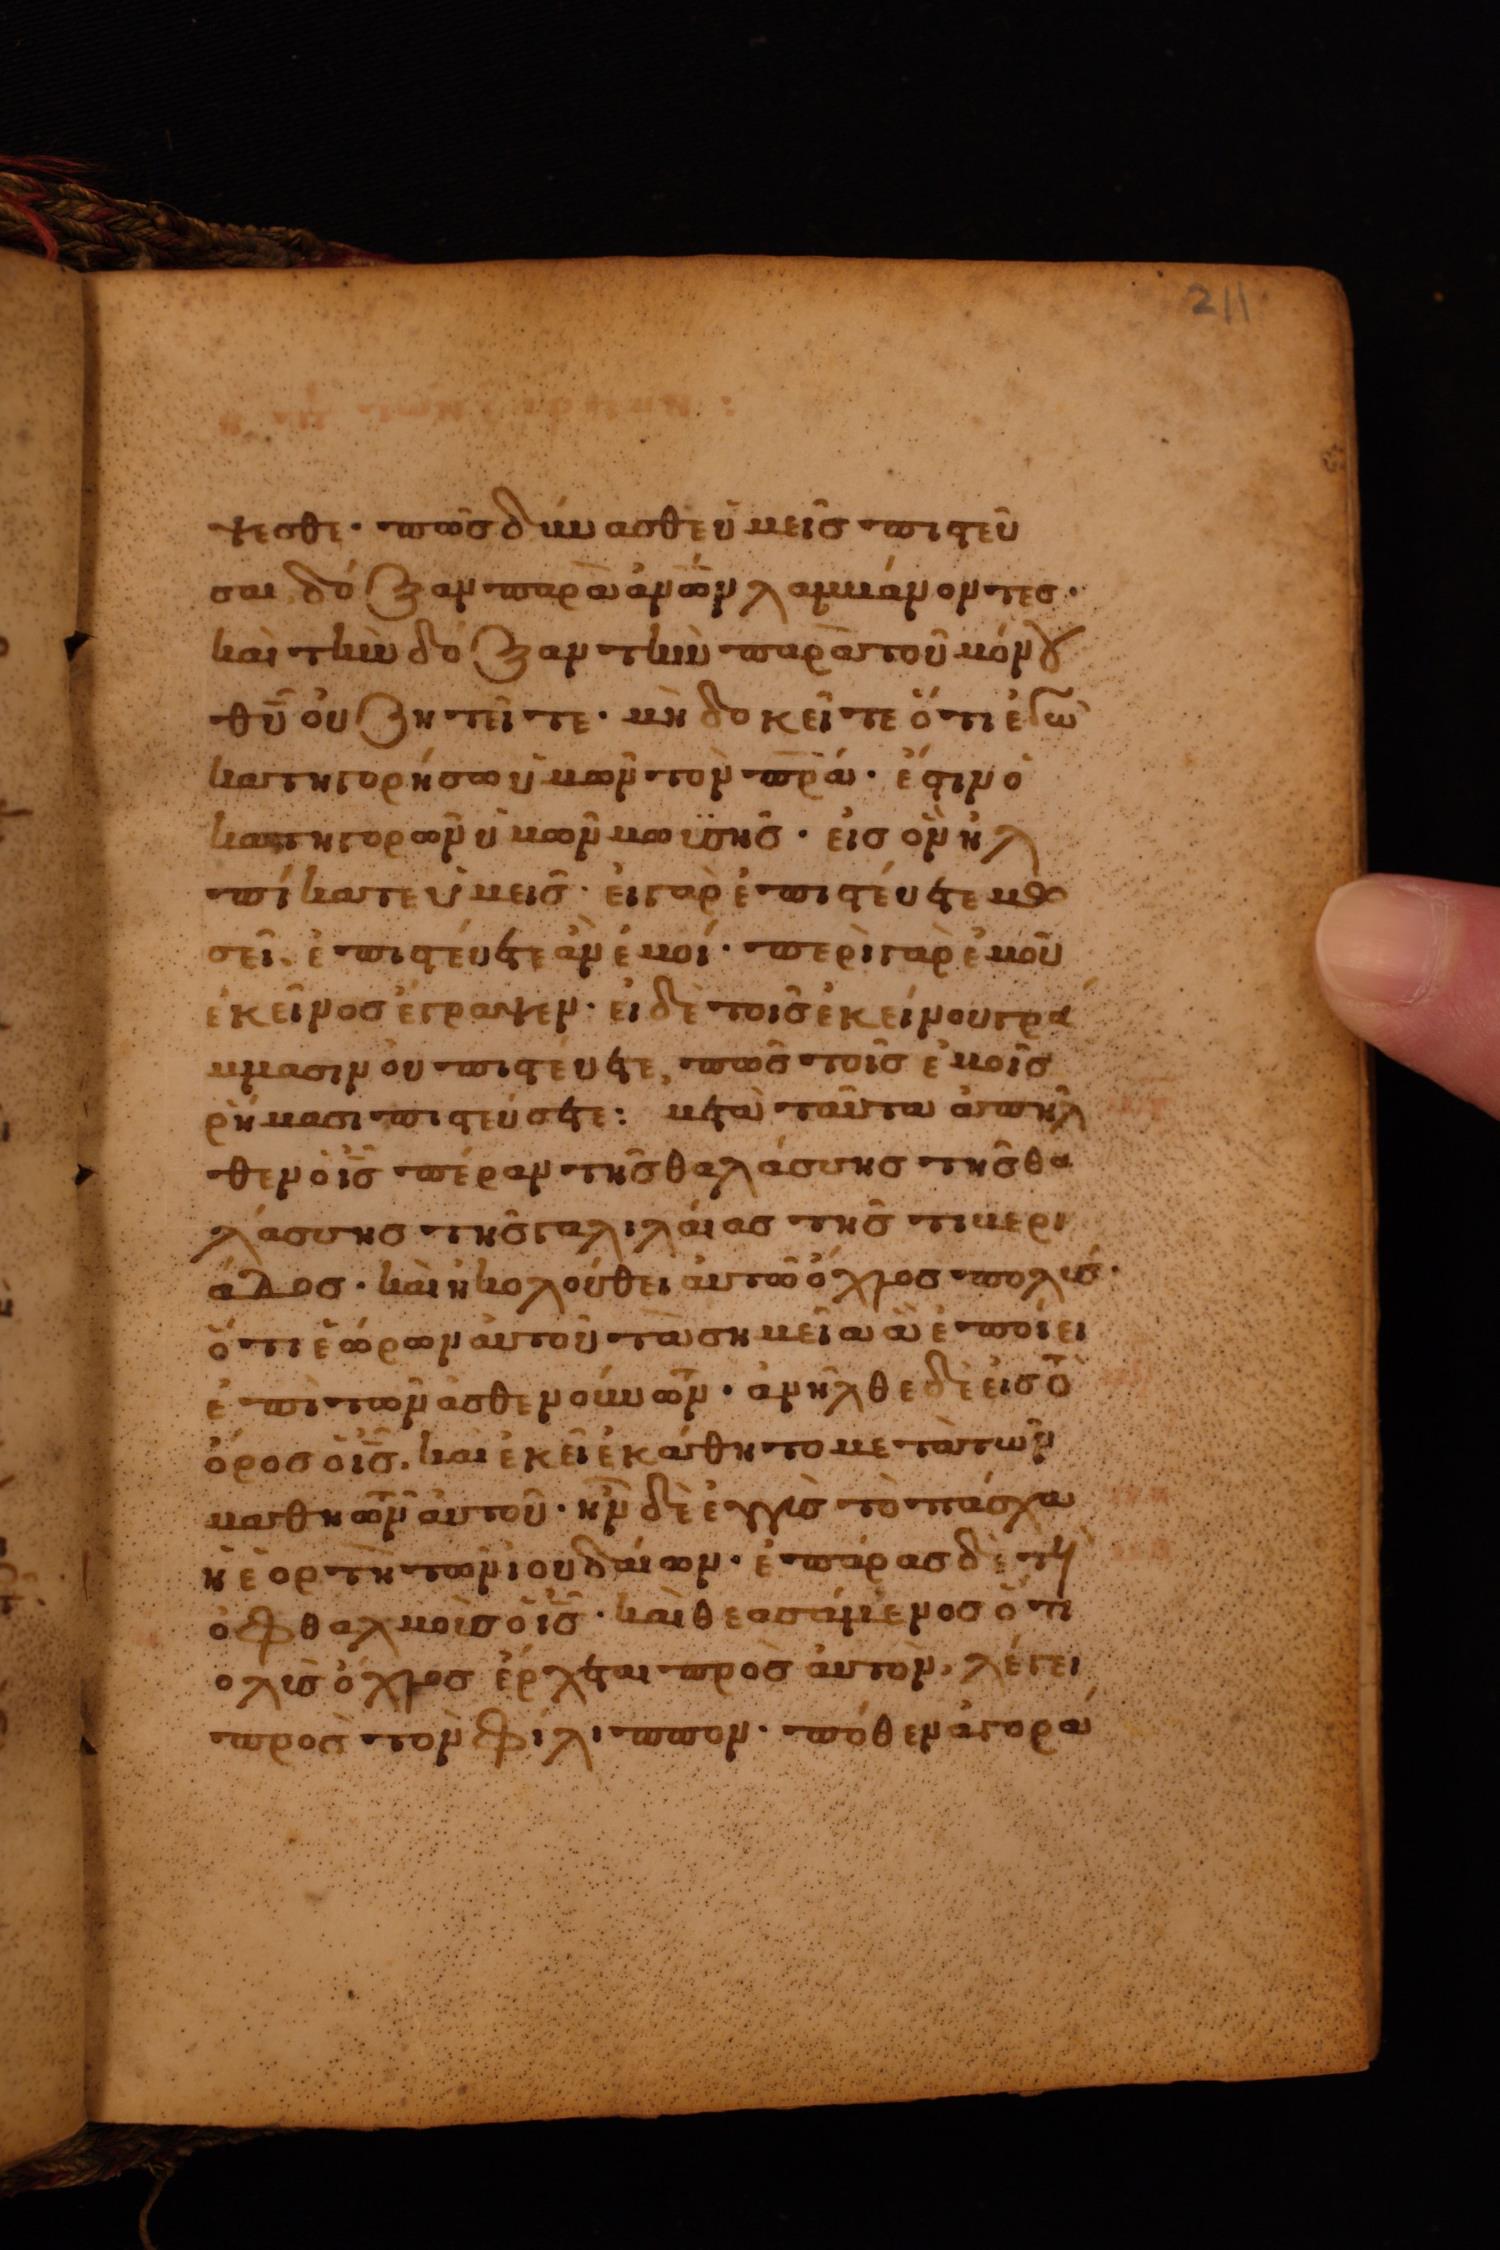 211
ψεσθε· πῶς δύνασθε ὑμεῖς πιστεῦ
σαι δόξαν παρὰ ἀνῶν λαμβάνοντες·
καὶ τὴν δόξαν τὴν παρὰ τοῦ μόνου
θῦ οὐ ζητεῖτε· μὴ δοκεῖτε ὅτι ἐγὼ
κατηγορήσω ὑμῶν τὸν πρα· ἔστιν ὁ
κατηγορῶν ὑμῶν μωϋσῆς· εἰς ὃν ἠλ
πίκατε ὑμεῖς· εἰ γὰρ ἐπιστεύετε μω
σεῖ. ἐπιστεύετε ἂν ἐμοί· περὶ γὰρ ἐμοῦ
ἐκεῖνος ἔγραψεν· εἰ δὲ τοῖς ἐκείνου γρά
μμασιν οὐ πιστεύετε, πῶς τοῖς ἐμοῖς
ρήμασι πιστεύσετε: μετὰ ταῦτα ἀπῆλ
θεν ὁ ις πέραν τῆς θαλάσσης τῆς θα
λάσσης τῆς γαλιλαίας τῆς τιβερι
άδος· καὶ ἠκολούθει αὐτῶ ὄχλος πολύς·
ὅτι ἑώρων αὐτοῦ τὰ σημεῖα ἃ ἐποίει
ἐπὶ τῶν ἀσθενούντων· ἀνῆλθε δὲ εἰς τὸ
ὄρος ὁ ις. καὶ ἐκεῖ ἐκάθητο μετὰ τῶν
μαθητῶν αὐτοῦ· ἦν δὲ ἐγγὺς τὸ πάσχα
ἡ ἑορτὴ τῶν ἰουδαίων· ἐπάρας δὲ τοὺς
ὀφθαλμοὺς ὁ ις· καὶ θεασάμενος ὅτι π
ολὺς ὄχλος ἔρχεται πρὸς αὐτὸν, λέγει
πρὸς τὸν φίλιππον· πόθεν ἀγορά